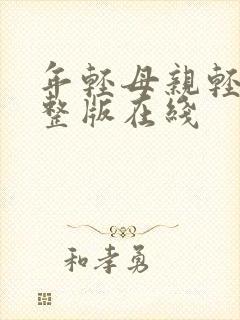 年輕母親輕
整版在綫
和孝勇